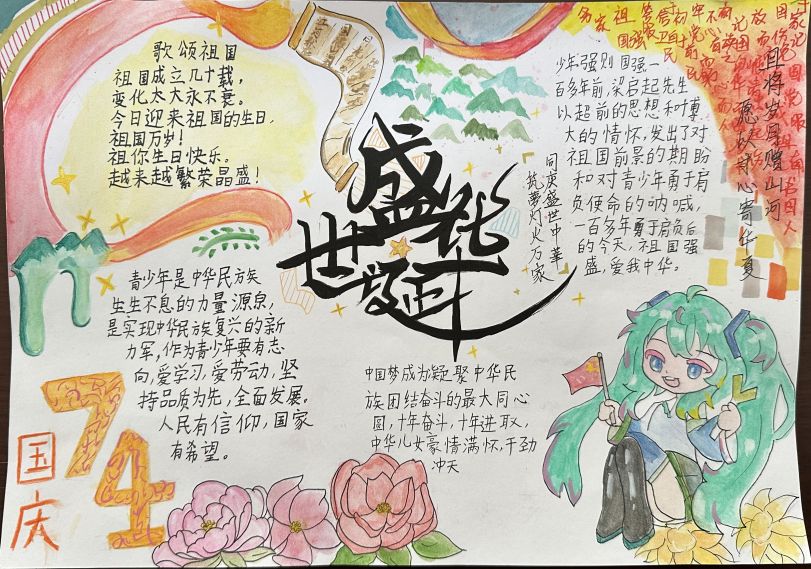 歌颂祖国
祖国成立几十载,
变化太大永不衰。
今日迎来祖国的生日,
祖国万岁!
祖你生日快乐。
越来越繁荣晶盛!
盛世华诞
同庆盛世中華
筑夢灯火万家
少年强则国强一
百多年前,梁启超先生
以超前的思想和博
大的情怀,发出了对
祖国前景的期盼
和对青少年勇于肩
负使命的呐喊,
一百多年勇于肩负后
的今天,祖国强
盛,爱我中华。
且将岁月赠山河
愿以诗心寄华夏
青少年是中华民族
生生不息的力量源泉,
是实现中华民族复兴的新
力军,作为青少年要有志
向,爱学习,爱劳动,坚
持品质为先,全面发展。
人民有信仰,国家
有希望。
中国梦成为凝聚中华民
族团结奋斗的最大同心
圆,十年奋斗,十年进取,
中华儿女豪情满怀,干劲
冲天
74
国庆